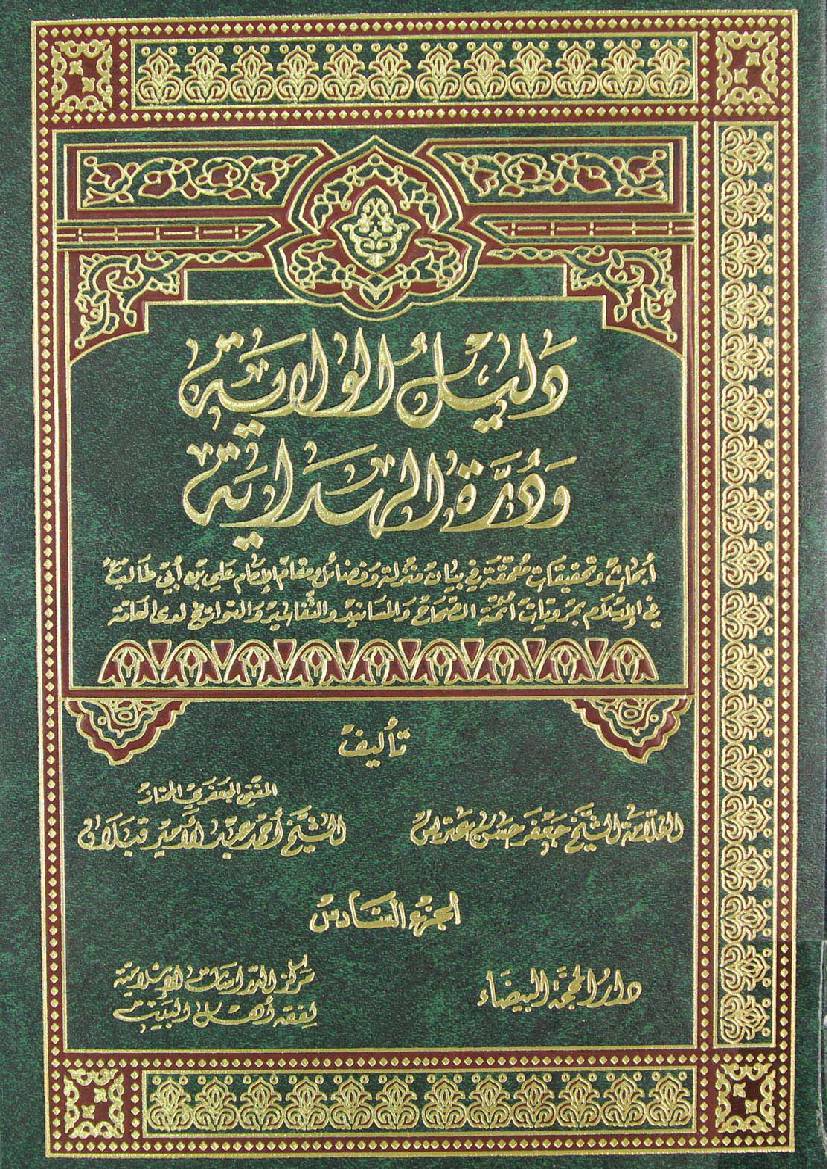 دَليلُ الولايَة
وَدُرَّةُ الهِدَايَة
أبحاث وتحقيقات محققة في بيان منزلة وفضائل ومقام الإمام علي بن أبي طالب
في الإسلام بمرويات أئمة الصحاح والمسانيد والتفاسير والجوامع لدى العامة
تأليف
المفتي الجعفري الممتاز
العلامة الشيخ جعفر حسن عتريس الشيخ أحمد عبد الأمير قبلان
الجزء السادس
دار المحجة البيضاء
مركز الدراسات الإسلامية
لفقه أهل البيت